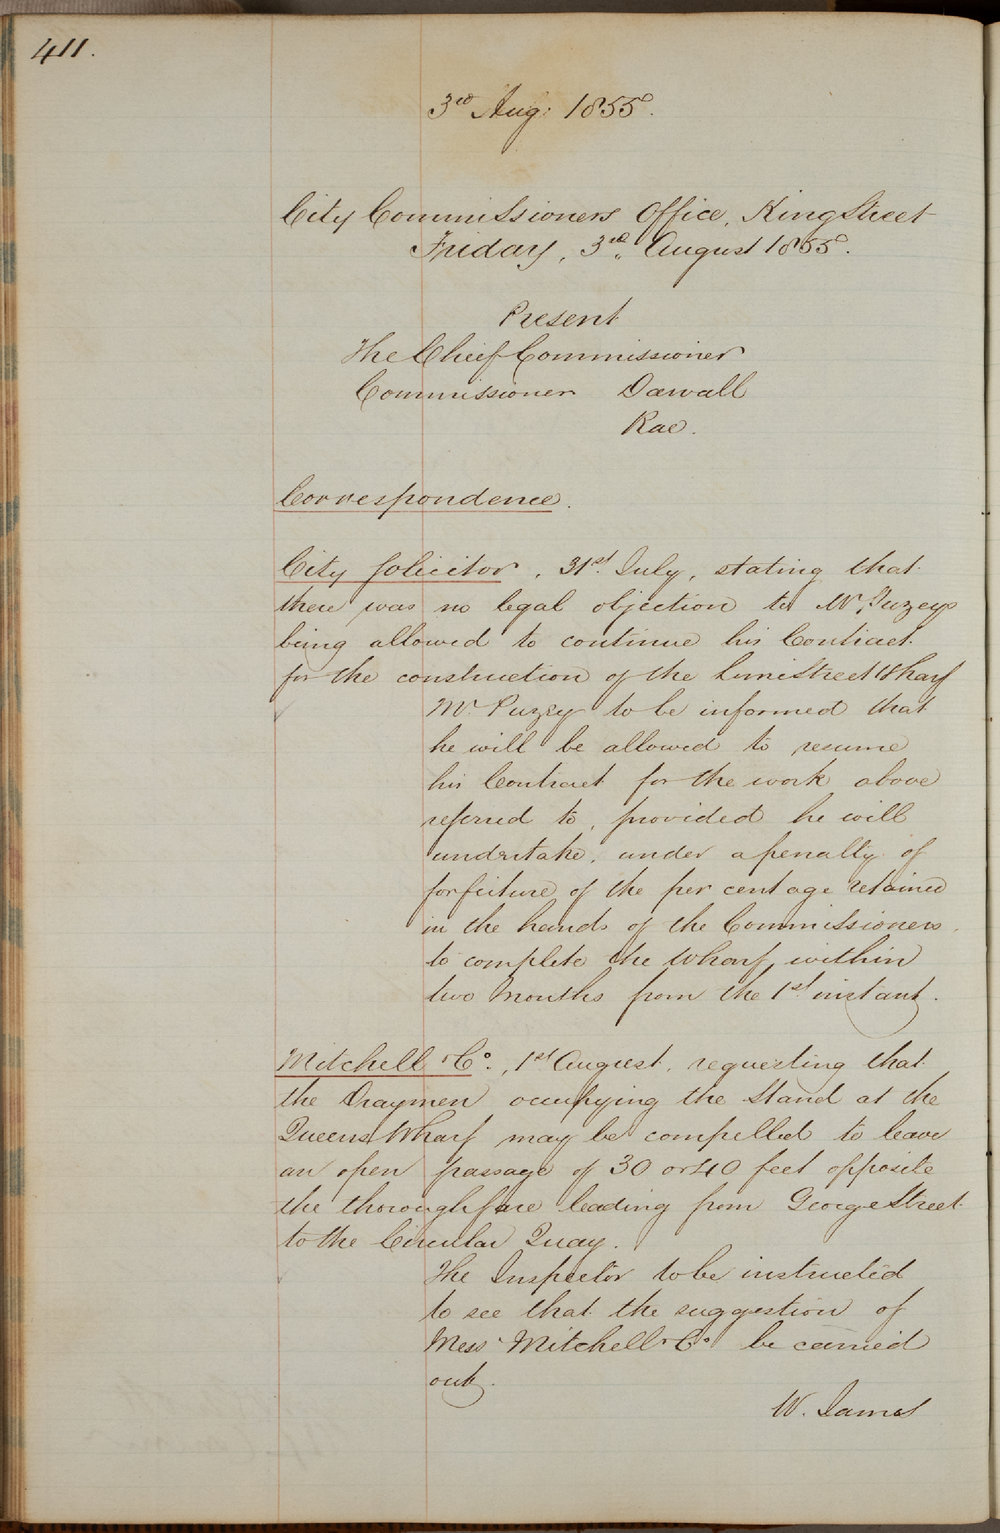 411.
3rd Aug: 1855.
City Commissioners Office, King Street
Friday, 3rd August 1855.
Present
The Chief Commissioner
Commissioner Darvall
Rae.
Correspondence.
City Solicitor, 31st July, stating that
there was no legal objection to Mr. Puzeys
being allowed to continue his Contract
for the construction of the Lime Street Wharf
Mr. Puzey to be informed that
he will be allowed to resume
his Contract for the work above
referred to, provided he will
undertake, under a penalty of
forfeiture of the per centage retained
in the hands of the Commissioners,
to complete the Wharf, within
two Months from the 1st instant.
Mitchell & Co., 1st August, requesting that
the Draymen occupying the Stand at the
Queens Wharf may be compelled to leave
an open passage of 30 or 40 feet opposite
the thoroughfare leading from George Street
to the Circular Quay.
The Inspector to be instructed
to see that the suggestion of
Mess. Mitchell & Co be carried
out.
W. James